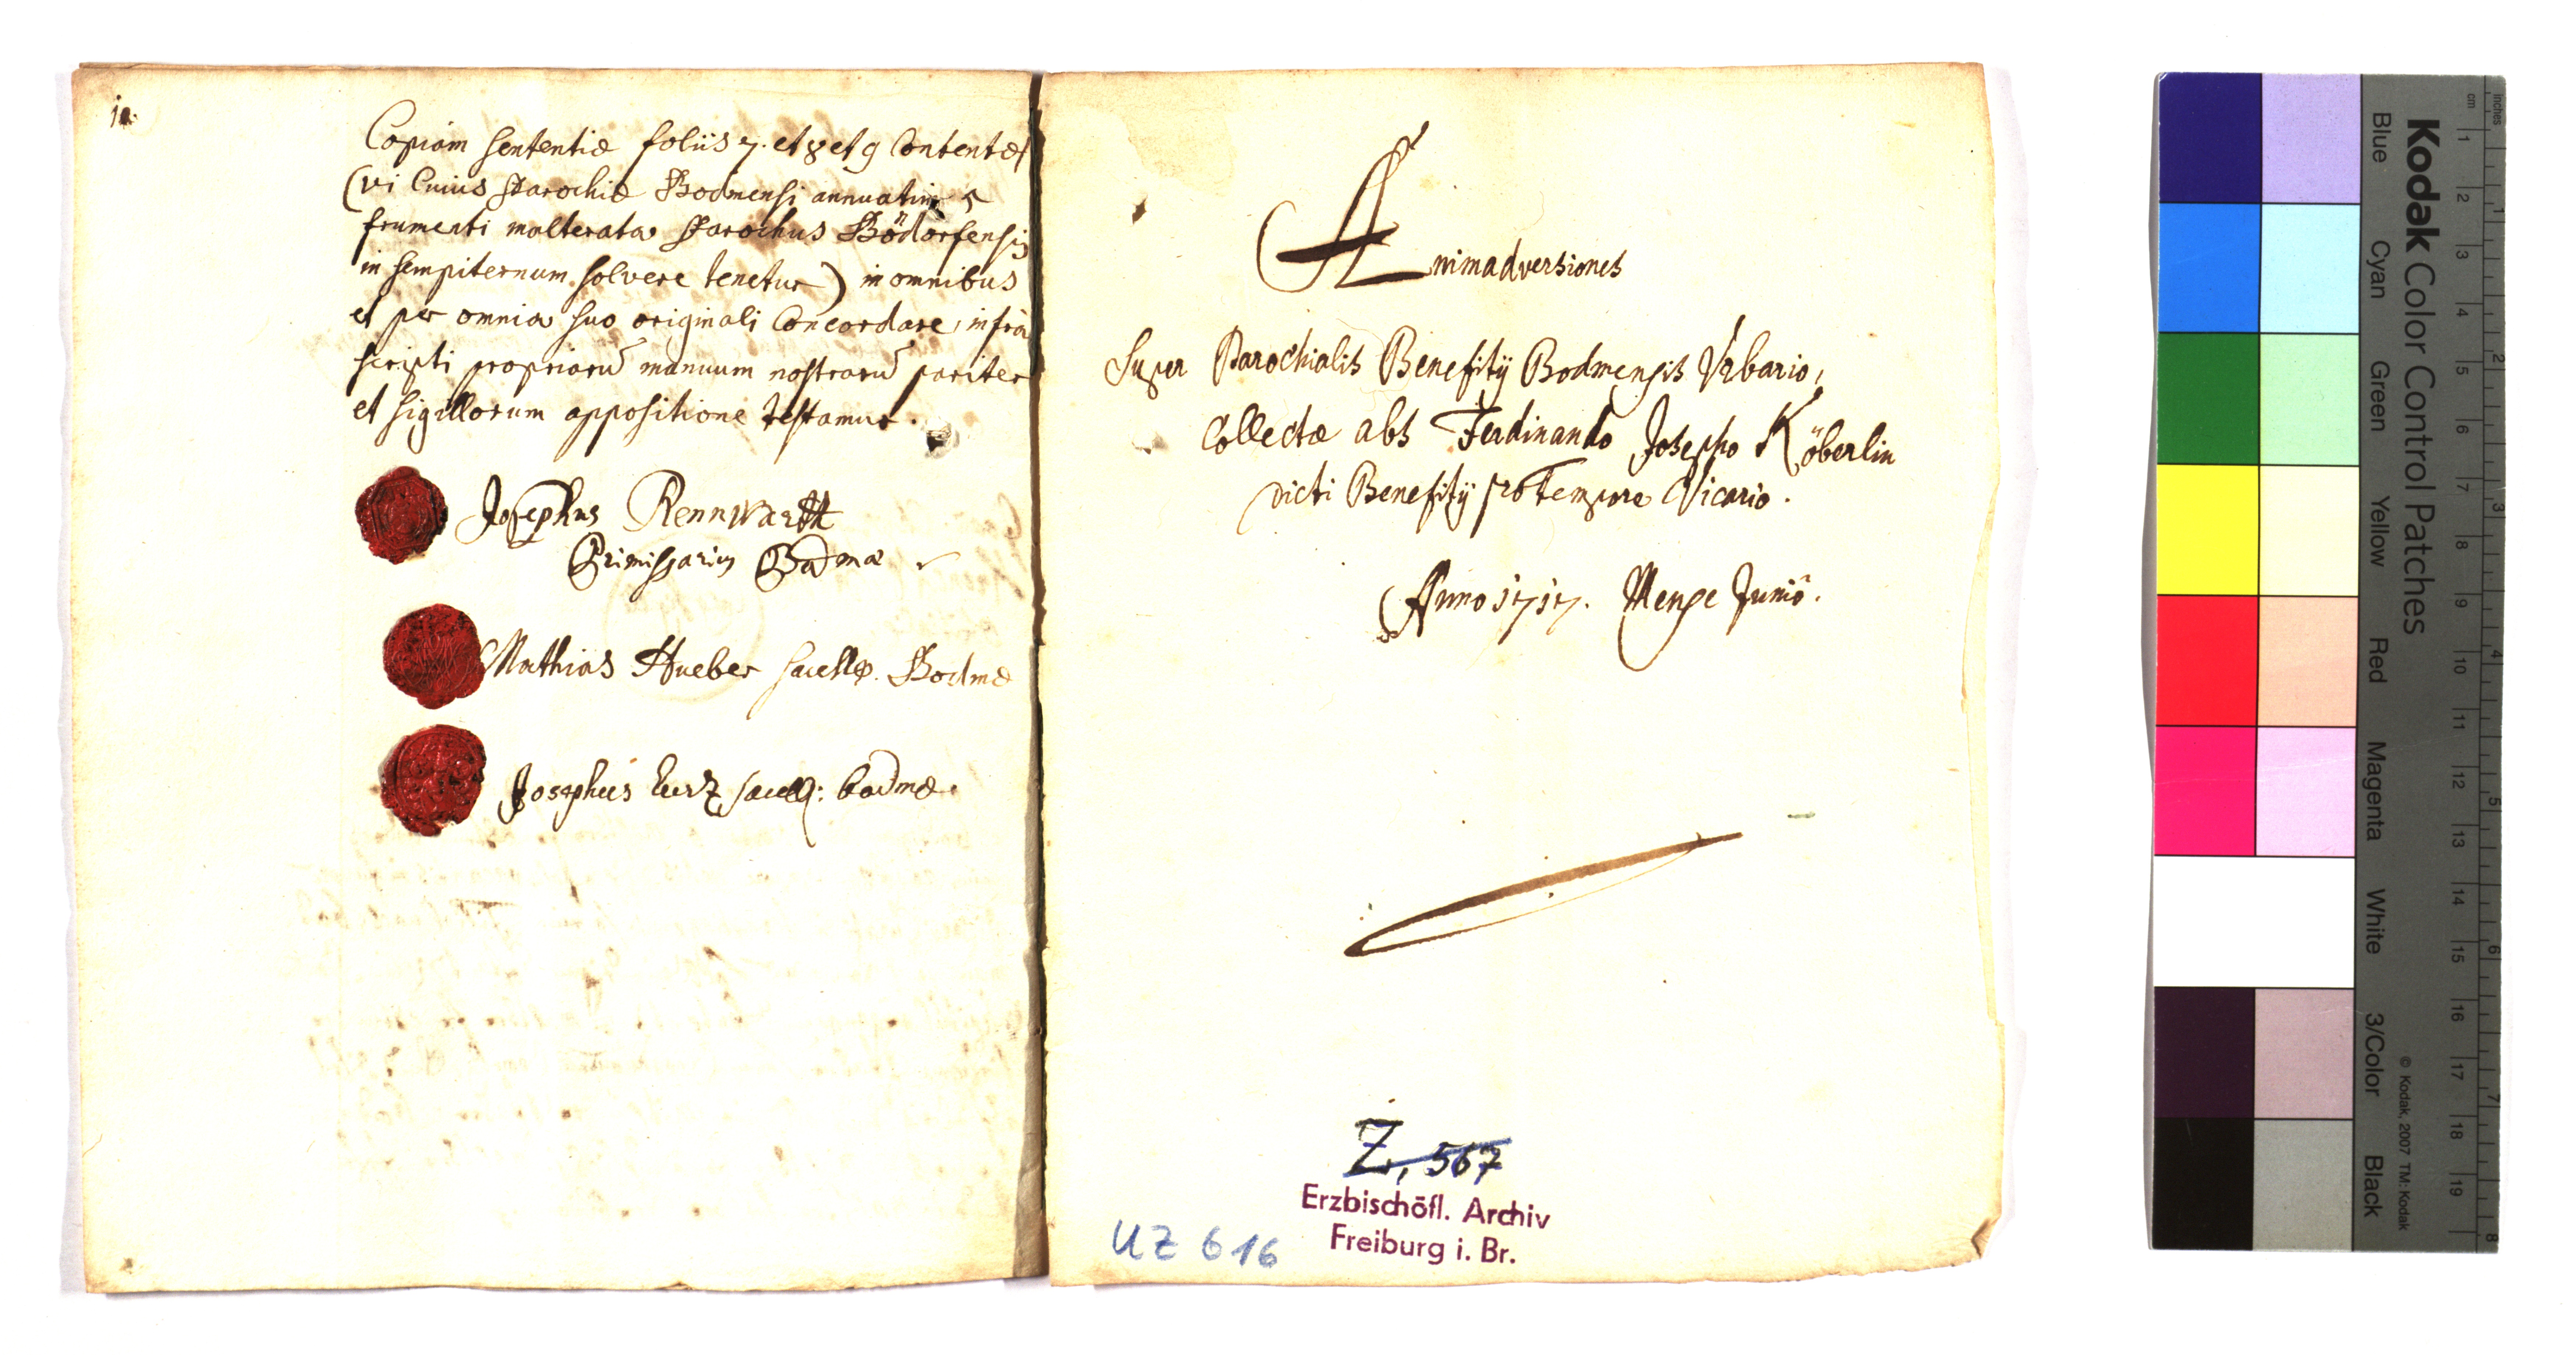 10.
Copiam sententiæ foliis 7. et 8 et 9 Contentæ
(vi Cuius Parochiæ Bodmensi annuatim 5
frumenti malterata Parochus Bödorfensis
in sempiternum solvere tenetur) in omnibus
et per omnia suo originali Concordare, infra
scripti propriarū manuum nostrarū pariter
et sigillorum appositione testamur.
Josephus Rennwartt
Primissarius Bodmæ
Mathias Hueber sacell9. Bodmæ
Josephus Curz sacell9: bodmæ.
Animadversiones
Super Parochialis Benefitij Bodmensis Vrbario,
Collectæ abs Ferdinando Josepho Köberlin
dicti Benefitij pro Tempore Vicario.
Anno 1717. Mense Junió.
Z, 567
Erzbischöfl. Archiv
Freiburg i. Br.
UZ 616
Kodak Color Control Patches
Blue Cyan Green Yellow Red Magenta White 3/Color Black
© Kodak, 2007 TM: Kodak
cm 1 2 3 4 5 6 7 8 9 10 11 12 13 14 15 16 17 18 19
inches 1 2 3 4 5 6 7 8